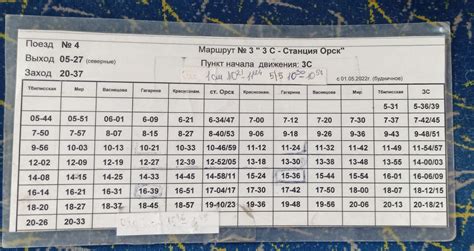 Поезд № 4
Маршрут № 3 " 3 С - Станция Орск"
Выход 05-27 (северные)
Пункт начала движения: 3С
Заход 20-37
с 01.05.2022г. (будничное)
Тбилисская Мир Васнецова Гагарина Краснознам. ст. Орск Краснознам. Гагарина Васнецова Мир Тбилисская 3С
5-31 5-36/39
05-44 05-51 06-01 6-09 6-21 6-34/47 7-00 7-12 7-20 7-30 7-37 7-42/45
7-50 7-57 8-07 8-15 8-27 8-40/53 9-06 9-18 9-26 9-36 9-43 9-48/51
9-56 10-03 10-13 10-21 10-33 10-46/59 11-12 11-24 11-32 11-42 11-49 11-54/57
12-02 12-09 12-19 12-27 12-39 12-52/05 13-18 13-30 13-38 13-48 13-55 14-00/03
14-08 14-15 14-25 14-33 14-45 14-58/11 15-24 15-36 15-44 15-54 16-01 16-06/09
16-14 16-21 16-31 16-39 16-51 17-04/17 17-30 17-42 17-50 18-00 18-07 18-12/15
18-20 18-27 18-37 18-45 18-57 19-10/23 19-36 19-48 19-56 20-06 20-13 20-18/21
20-26 20-33